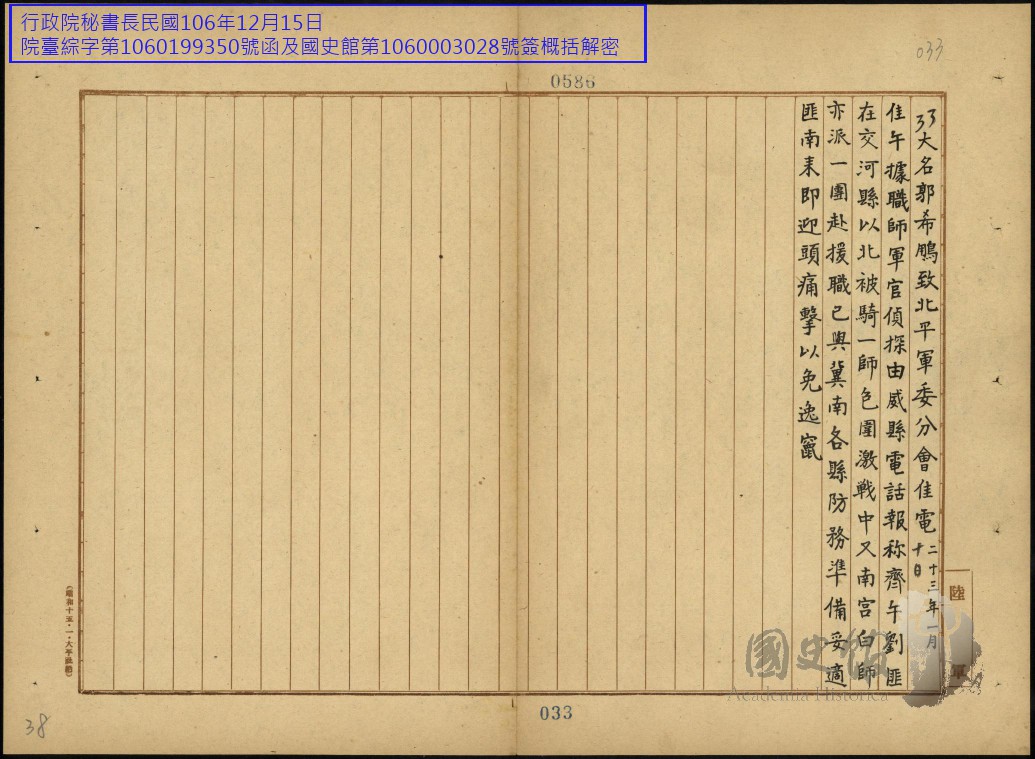 行政院秘書長民國106年12月15日
院臺綜字第1060199350號函及國史館第1060003028號簽概括解密
033
0586
33大名郭希鵬致北平軍委分會佳電 二十三年一月十日
佳午據職師軍官偵探由威縣電話報称齊午劉匪
在交河縣以北被騎一師包圍激戰中又南宮白師
亦派一團赴援職已與冀南各縣防務準備妥適
匪南来即迎頭痛擊以免逸竄
陸軍
國史館
Academia Historica
033
38